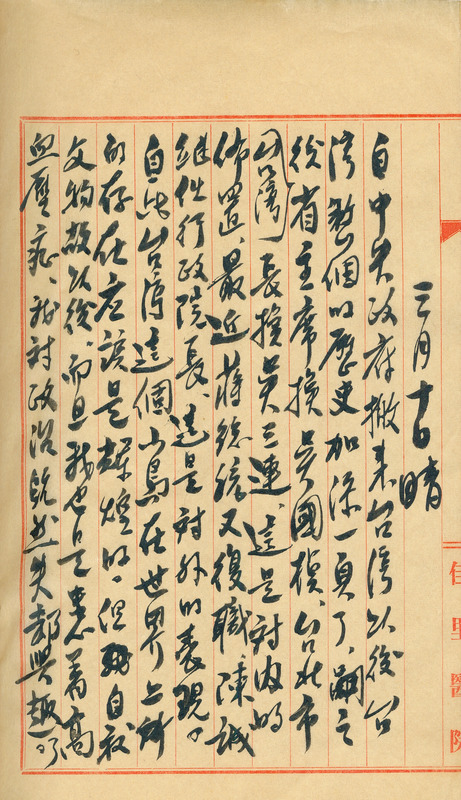 三月十一日 晴
自中央政府撤來台灣以後台
灣整個的歷史加添一頁了、嗣之
後省主席換吳國楨、台北市
長換吳三連、這是對內的
佈置、最近蔣總統又復職、陳誠
繼任行政院長、這是對外的表現。
自此台灣這個小島在世界上所
的存在應該是輝煌的、但我自被
文物以後、而且我也日患著高
血壓症、我對政治既然失却興趣、
佳里醫院